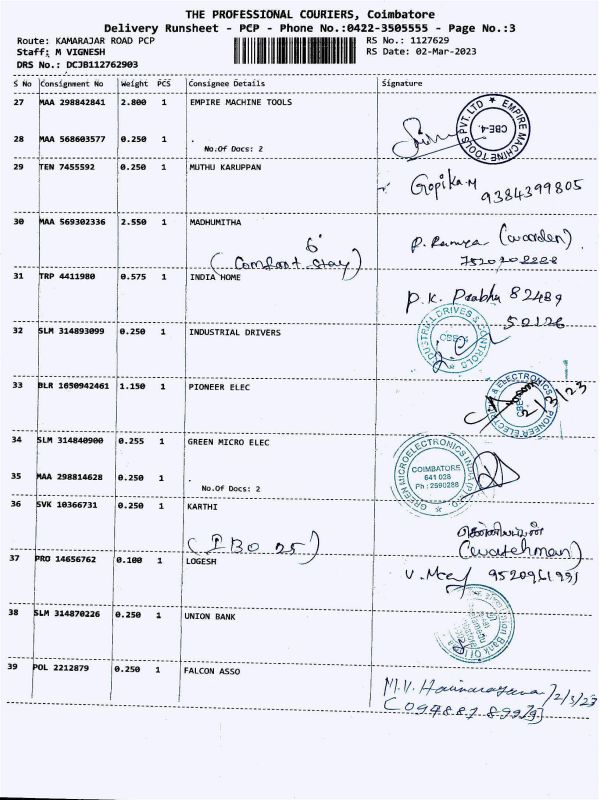 THE PROFESSIONAL COURIERS, Coimbatore
Delivery Runsheet - PCP - Phone No.:0422-3505555 - Page No.:3
Route: KAMARAJAR ROAD PCP RS No.: 1127629
Staff: M VIGNESH RS Date: 02-Mar-2023
DRS No.: DCJB112762903
S No Consignment No Weight PCS Consignee Details Signature
27 MAA 298842841 2.800 1 EMPIRE MACHINE TOOLS
EMPIRE MACHINE TOOLS PVT. LTD ★ CBE-4.
28 MAA 568603577 0.250 1 .
No.Of Docs: 2
29 TEN 7455592 0.250 1 MUTHU KARUPPAN
Gopika.M 9384399805
30 MAA 569302336 2.550 1 MADHUMITHA
P. Ramya (warden)
(Comfort stay)
31 TRP 4411980 0.575 1 INDIA HOME
P.K. Prabhu 82489
50126
32 SLM 314893099 0.250 1 INDUSTRIAL DRIVERS
INDUSTRIAL DRIVES & CONTROLS
33 BLR 1650942461 1.150 1 PIONEER ELEC
PIONEER ELECTRICAL & ELECTRONICS
2/3/23
34 SLM 314840900 0.255 1 GREEN MICRO ELEC
GREEN MICROELECTRONICS INDIA (P) LTD.
COIMBATORE
641 028
Ph : 2590288
35 MAA 298814628 0.250 1 .
No.Of Docs: 2
36 SVK 10366731 0.250 1 KARTHI
(watchman)
37 PRO 14656762 0.100 1 LOGESH
38 SLM 314870226 0.250 1 UNION BANK
Union Bank Of
39 POL 2212879 0.250 1 FALCON ASSO
M.V. Harinarayana /2/3/23